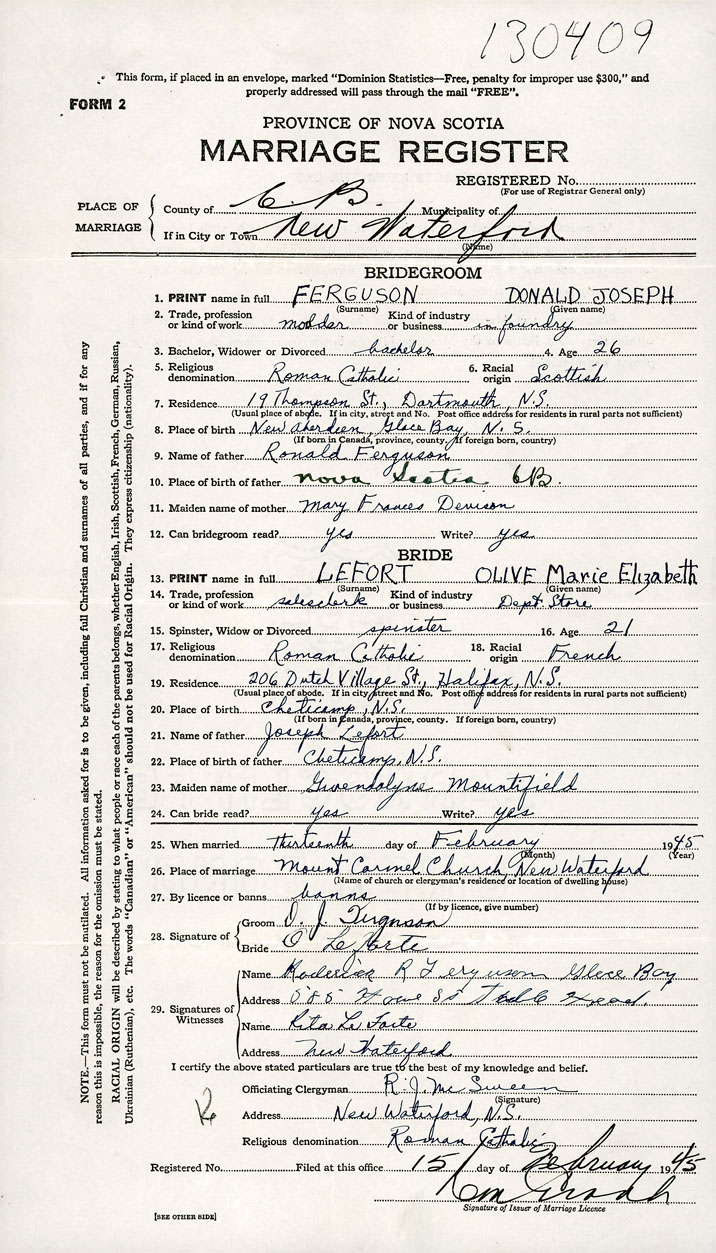 130409
This form, if placed in an envelope, marked "Dominion Statistics—Free, penalty for improper use $300," and
properly addressed will pass through the mail "FREE".
FORM 2
PROVINCE OF NOVA SCOTIA
MARRIAGE REGISTER
REGISTERED No.
(For use of Registrar General only)
PLACE OF MARRIAGE
County of C. B. Municipality of
If in City or Town New Waterford
(Name)
BRIDEGROOM
1. PRINT name in full FERGUSON DONALD JOSEPH
(Surname) (Given name)
2. Trade, profession or kind of work molder Kind of industry or business in foundry
3. Bachelor, Widower or Divorced bachelor 4. Age 26
5. Religious denomination Roman Catholic 6. Racial origin Scottish
7. Residence 19 Thompson St., Dartmouth, N.S.
(Usual place of abode. If in city, street and No. Post office address for residents in rural parts not sufficient)
8. Place of birth New Aberdeen, Glace Bay, N.S.
(If born in Canada, province, county. If foreign born, country)
9. Name of father Ronald Ferguson
10. Place of birth of father Nova Scotia CB.
11. Maiden name of mother Mary Frances Denison
12. Can bridegroom read? yes Write? yes
BRIDE
13. PRINT name in full LEFORT OLIVE Marie Elizabeth
(Surname) (Given name)
14. Trade, profession or kind of work salesclerk Kind of industry or business Dept. Store
15. Spinster, Widow or Divorced spinster 16. Age 21
17. Religious denomination Roman Catholic 18. Racial origin French
19. Residence 206 Dutch Village St., Halifax, N.S.
(Usual place of abode. If in city, street and No. Post office address for residents in rural parts not sufficient)
20. Place of birth Cheticamp, N.S.
(If born in Canada, province, county. If foreign born, country)
21. Name of father Joseph Lefort
22. Place of birth of father Cheticamp, N.S.
23. Maiden name of mother Gwendolyne Mountifield
24. Can bride read? yes Write? yes
25. When married thirteenth day of February 1945
(Month) (Year)
26. Place of marriage Mount Carmel Church, New Waterford
(Name of church or clergyman's residence or location of dwelling house)
27. By licence or banns banns
(If by licence, give number)
28. Signature of
Groom D. J. Ferguson
Bride O Le Forte
29. Signatures of Witnesses
Name Roderick R Ferguson Glace Bay
Address
Name Rita Le Forte
Address New Waterford
I certify the above stated particulars are true to the best of my knowledge and belief.
Officiating Clergyman R. J. McSween
(Signature)
Address New Waterford, N.S.
Religious denomination Roman Catholic
Registered No. Filed at this office 15 day of February 1945
Signature of Issuer of Marriage Licence
[SEE OTHER SIDE]
NOTE.—This form must not be mutilated. All information asked for is to be given, including full Christian and surnames of all parties, and if for any
reason this is impossible, the reason for the omission must be stated.
RACIAL ORIGIN will be described by stating to what people or race each of the parents belongs, whether English, Irish, Scottish, French, German, Russian,
Ukrainian (Ruthenian), etc. The words "Canadian" or "American" should not be used for Racial Origin. They express citizenship (nationality).